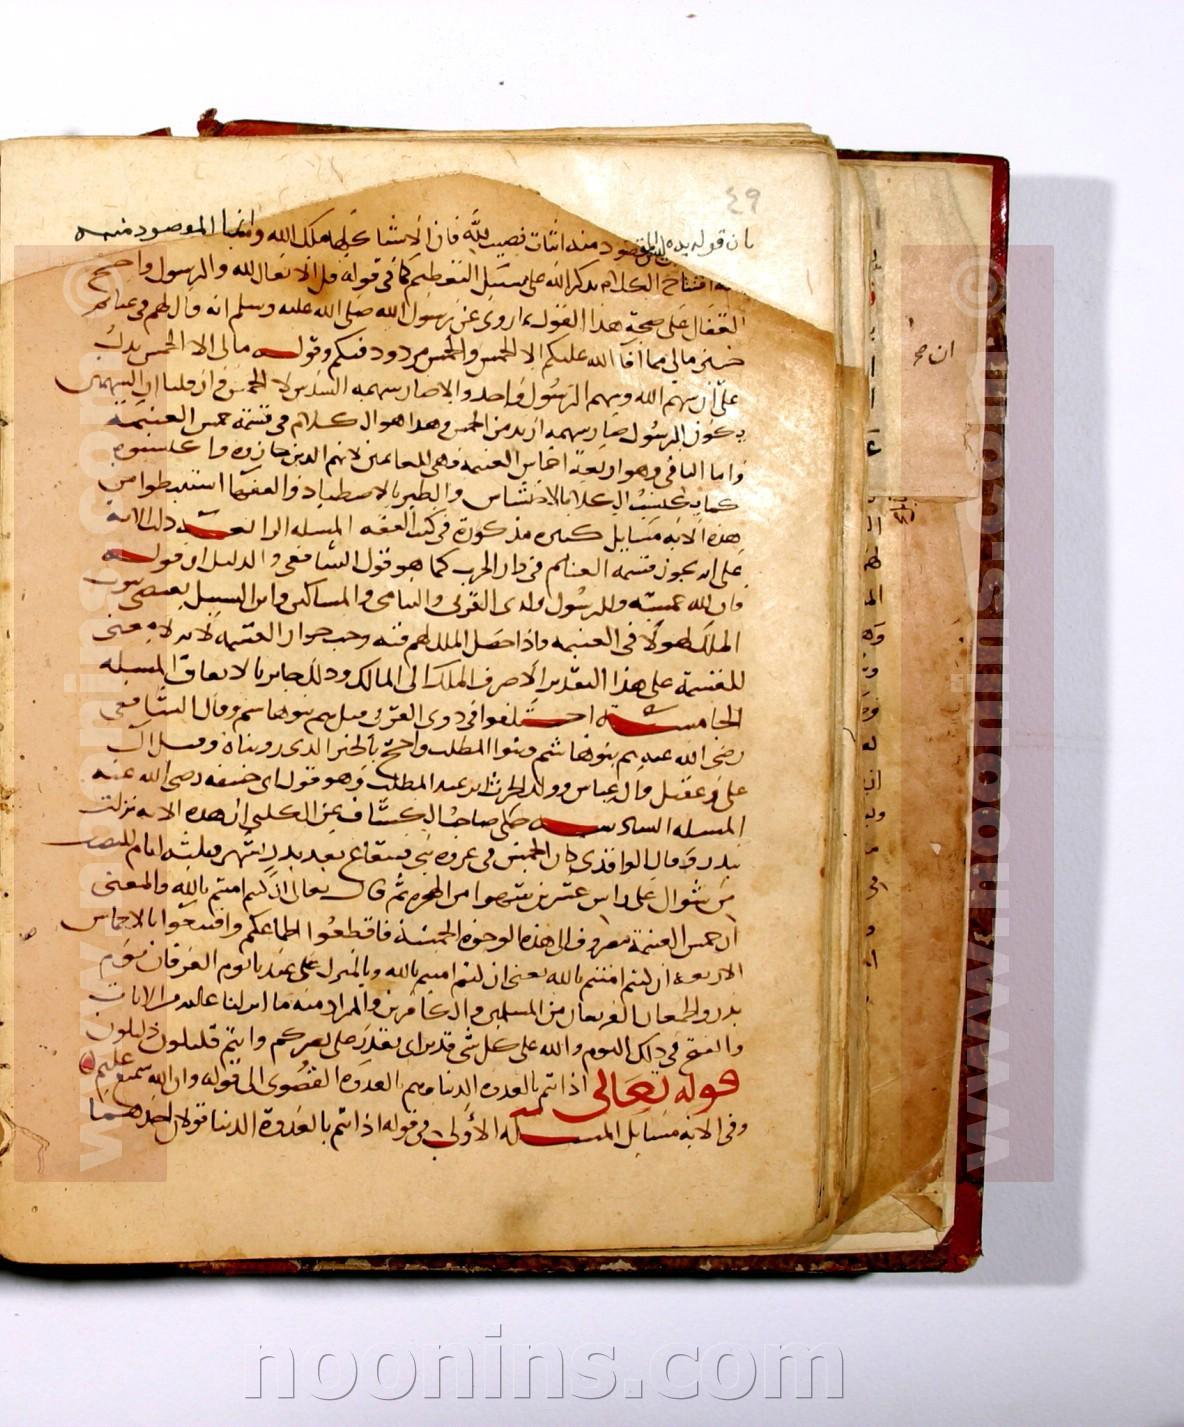 ٤٩
بان قوله لله ليس المقصود منه اثبات نصيب لله فان الاشيا كلها ملك الله وانما المقصود منه
افتتاح الكلام بذكر الله على سبيل التعظيم كما في قوله قل الانفال لله والرسول واحتج
القفال على صحة هذا القول بما روي عن رسول الله صلى الله عليه وسلم انه قال لهم في غنائم
حنين مالي مما افا الله عليكم الا الخمس والخمس مردود فيكم وقوله مالي الا الخمس يدل
على ان سهم الله وسهم الرسول واحد والا صار سهمه السدس لا الخمس فان قلنا ان السهمين
يكون للرسول صار سهمه ازيد من الخمس وهذا هو الكلام في قسمة خمس الغنيمة
واما الباقي وهو اربعة اخماس الغنيمة فهي للغانمين لانهم الذين حازوه واكتسبوه
كما يكتسب الكلا بالاحتشاش والطير بالاصطياد والفقها استنبطوا من
هذه الاية مسايل كثيرة مذكورة في كتب الفقه المسله الرابعه دلت الاية
على انه يجوز قسمة الغنايم في دار الحرب كما هو قول الشافعي والدليل ان قوله
فان لله خمسه وللرسول ولذي القربى واليتامى والمساكين وابن السبيل يقتضي ثبوت
الملك لهولا في الغنيمه واذا حصل الملك لهم فيه وجب جواز القسمة لانه لا معنى
للقسمة على هذا التقدير الا صرف الملك الى المالك وذلك جايز بالاتفاق المسله
الخامسه اختلفوا في ذوي القربى قيل هم بنو هاشم وقال الشافعي
رضي الله عنه هم بنو هاشم وبنوا المطلب واحتج بالخبر الذي رويناه وقيل ال
علي وعقيل وال عباس وولد الحرث ابن عبد المطلب وهو قول ابي حنيفه رضي الله عنه
المسله السادسه حكى صاحب الكشاف عن الكلبي ان هذه الاية نزلت
ببدر وقال الواقدي كان الخمس في غزوة بني قينقاع بعد بدر بشهر وثلثه ايام للنصف
من شوال على راس عشرين شهرا من الهجرة ثم قال تعالى ان كنتم امنتم بالله والمعنى
ان خمس الغنيمة مصروف الى هذه الوجوه الخمسة فاقطعوا اطماعكم واقنعوا بالاخماس
الاربعة ان كنتم امنتم بالله يعني ان كنتم امنتم بالله وبالمنزل على عبدنا يوم الفرقان يوم
بدر والجمعان الفريقان من المسلمين والكافرين والمراد منه ما انزلنا عليه من الايات
والفتح في ذلك اليوم والله على كل شي قدير اي يقدر على نصركم وانتم قليلون ذليلون
قوله تعالى اذ انتم بالعدوة الدنيا وهم بالعدوة القصوى الى قوله وان الله لسميع عليم
وفي الاية مسايل المسله الاولى في قوله اذ انتم بالعدوة الدنيا قولان احدهما
www.noonins.com
noonins.com